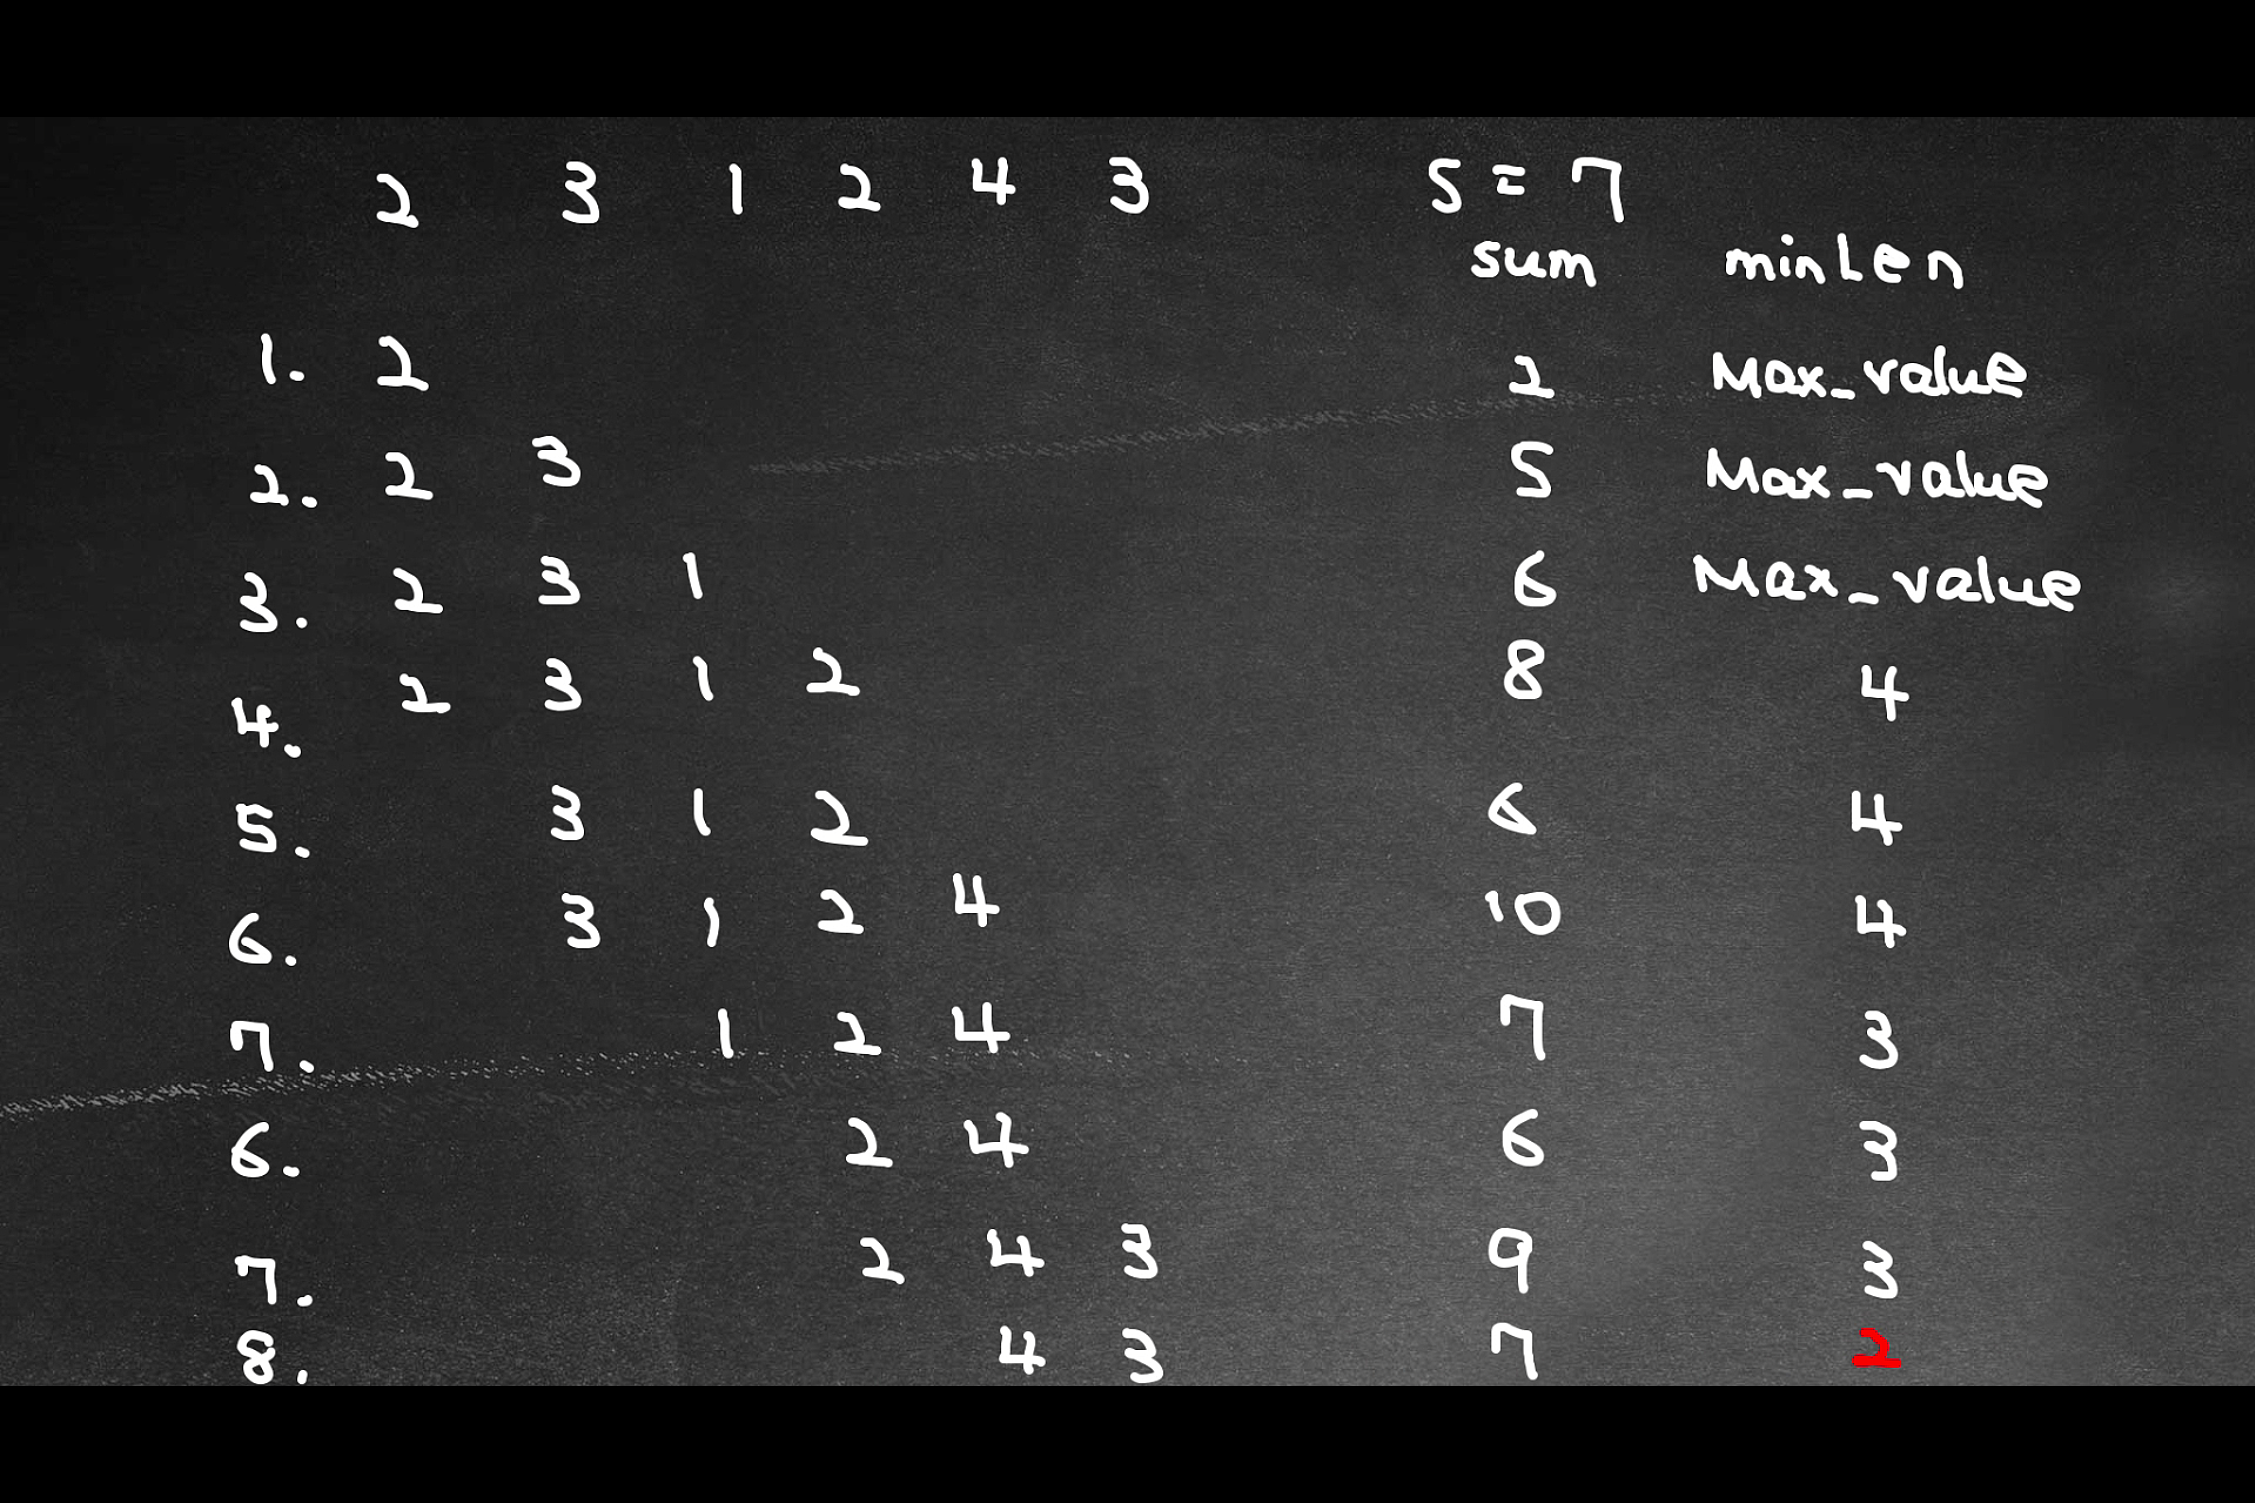 2 3 1 2 4 3 S = 7
sum minLen
1. 2 2 Max_value
2. 2 3 5 Max_value
3. 2 3 1 6 Max_value
4. 2 3 1 2 8 4
5. 3 1 2 6 4
6. 3 1 2 4 10 4
7. 1 2 4 7 3
6. 2 4 6 3
7. 2 4 3 9 3
8. 4 3 7 2